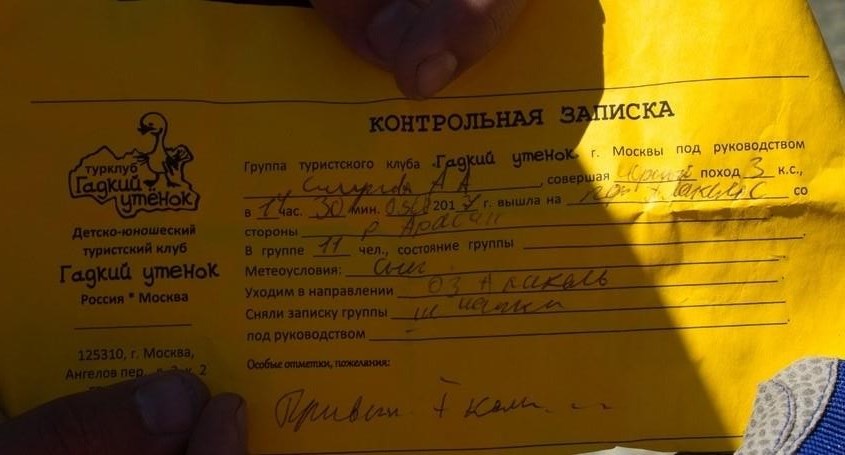 КОНТРОЛЬНАЯ ЗАПИСКА
турклуб
Гадкий
утёнок
Детско-юношеский
туристский клуб
Гадкий утенок
Россия * Москва
125310, г. Москва,
Ангелов пер.,
Группа туристского клуба Гадкий утенок г. Москвы под руководством
Смирнов А А, совершая горный поход 3 к.с.,
в час. 30 мин. 201 г. вышла на со
стороны р
В группе 11 чел., состояние группы
Метеоусловия: Снег
Уходим в направлении оз Алаколь
Сняли записку группы
под руководством -
Особые отметки, пожелания:
Привет